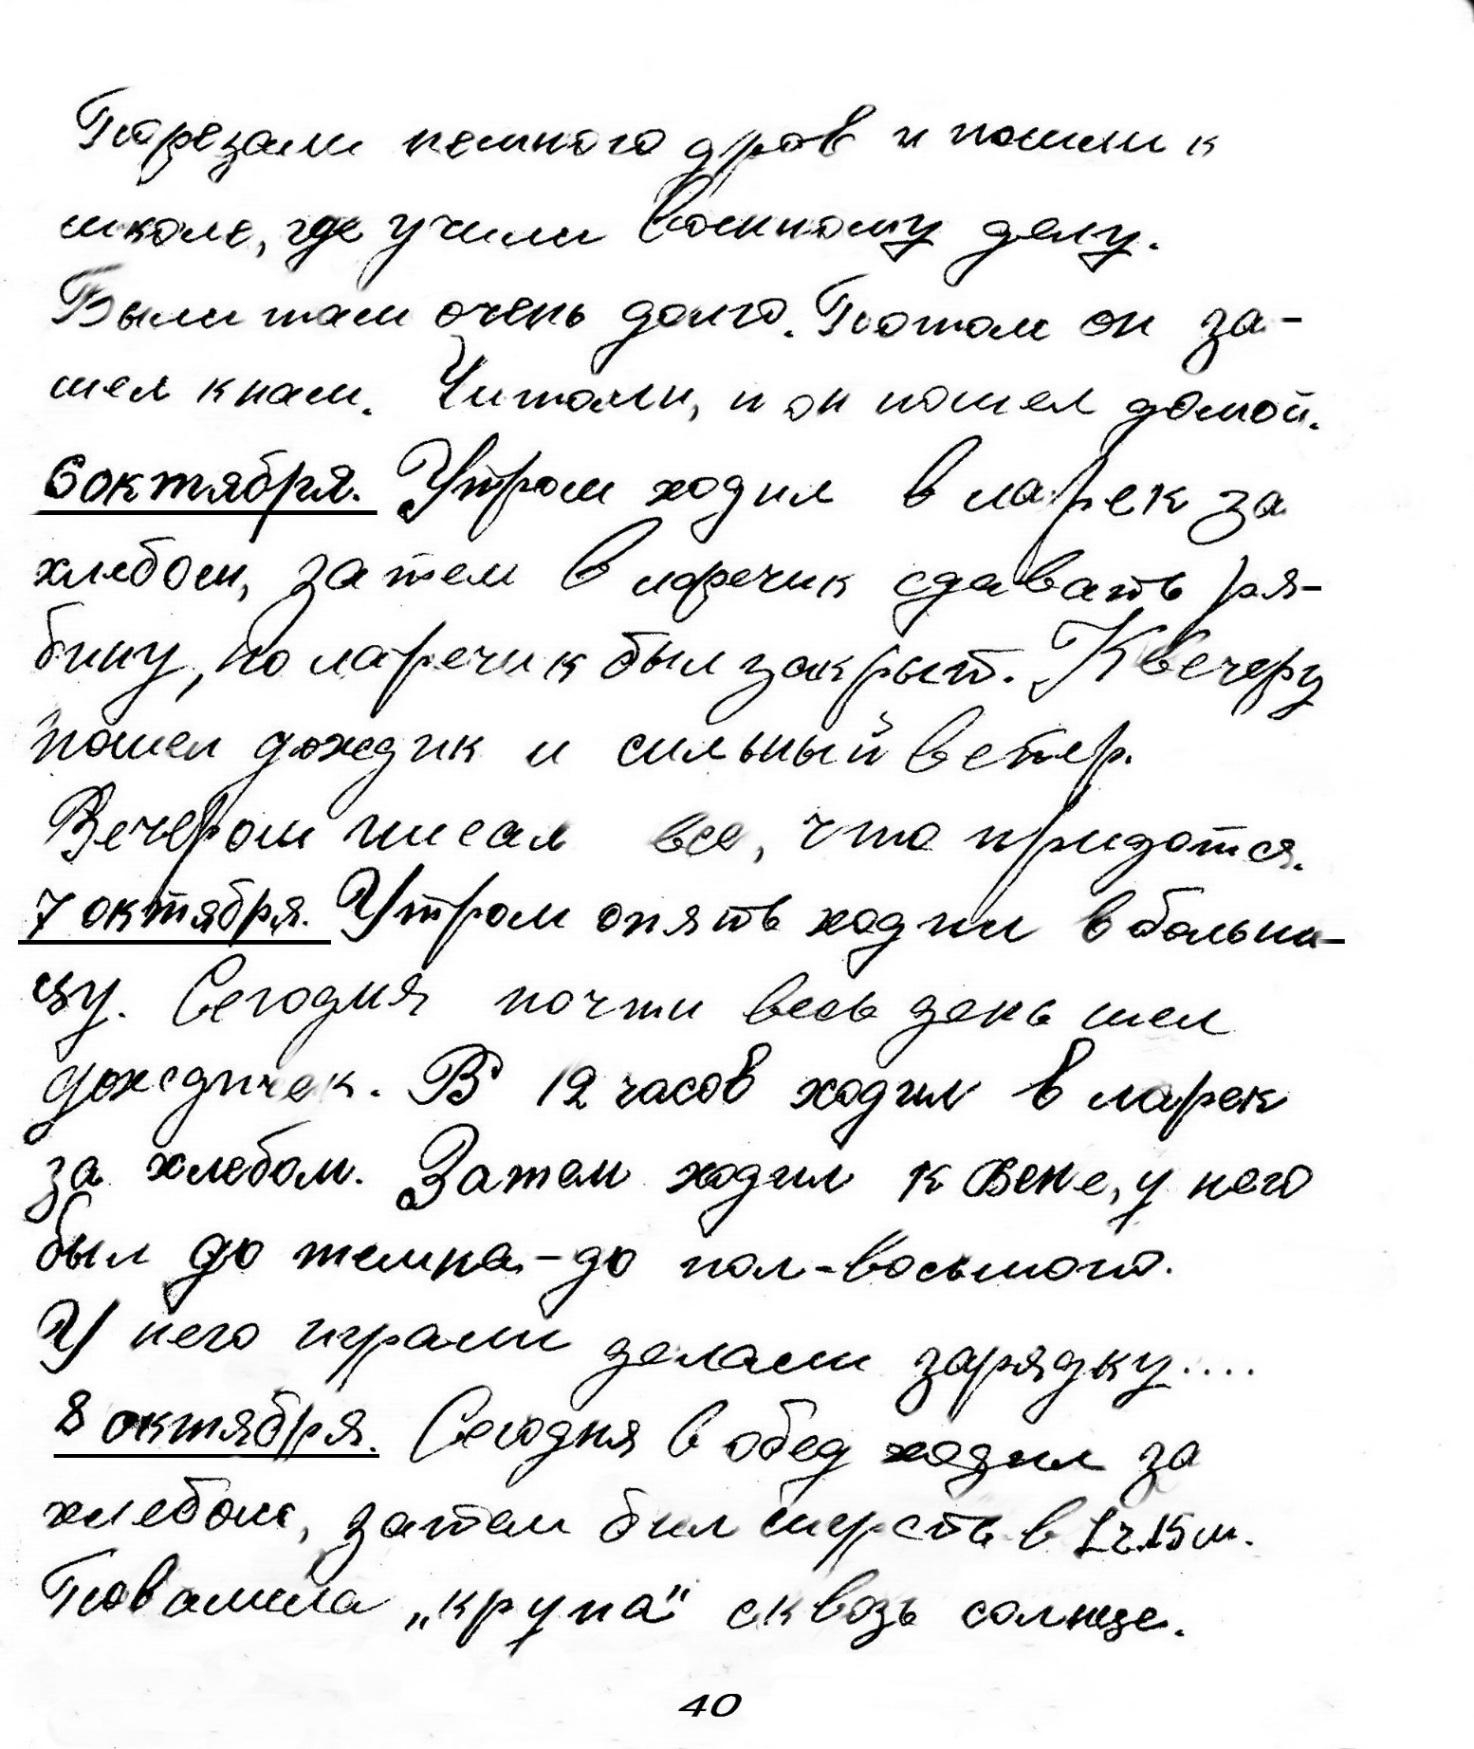 Порезали немного дров и пошли к
школе, где учили военному делу.
Были там очень долго. Потом он за-
шел к нам. Читали, и он пошел домой.
6 октября. Утром ходил в ларек за
хлебом, затем в ларечик сдавать ря-
бину, но ларечик был закрыт. К вечеру
пошел дождик и сильный ветер.
Вечером писал все, что придется.
7 октября. Утром опять ходил в больни-
цу. Сегодня почти весь день шел
дождичек. В 12 часов ходил в ларек
за хлебом. Затем ходил к Вене, у него
был до темна - до пол-восьмого.
У него играли делали зарядку....
8 октября. Сегодня в обед ходил за
хлебом, затем бил шерсть в 1 ч. 15 м.
Повалила „крупа" сквозь солнце.
40